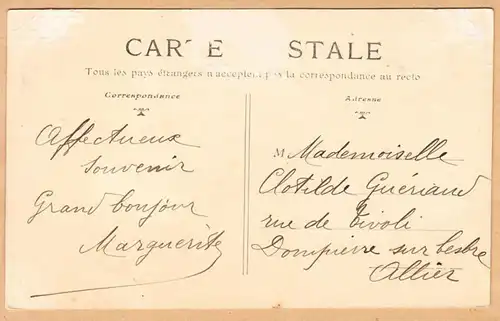 CARTE STALE
Tous les pays étrangers n'acceptent pas la correspondance au recto
Correspondance
Adresse
Affectueux
souvenir
Grand bonjour
Marguerite
M Mademoiselle
Clotilde Guériaud
rue de Tivoli
Dompierre sur Besbre
Allier